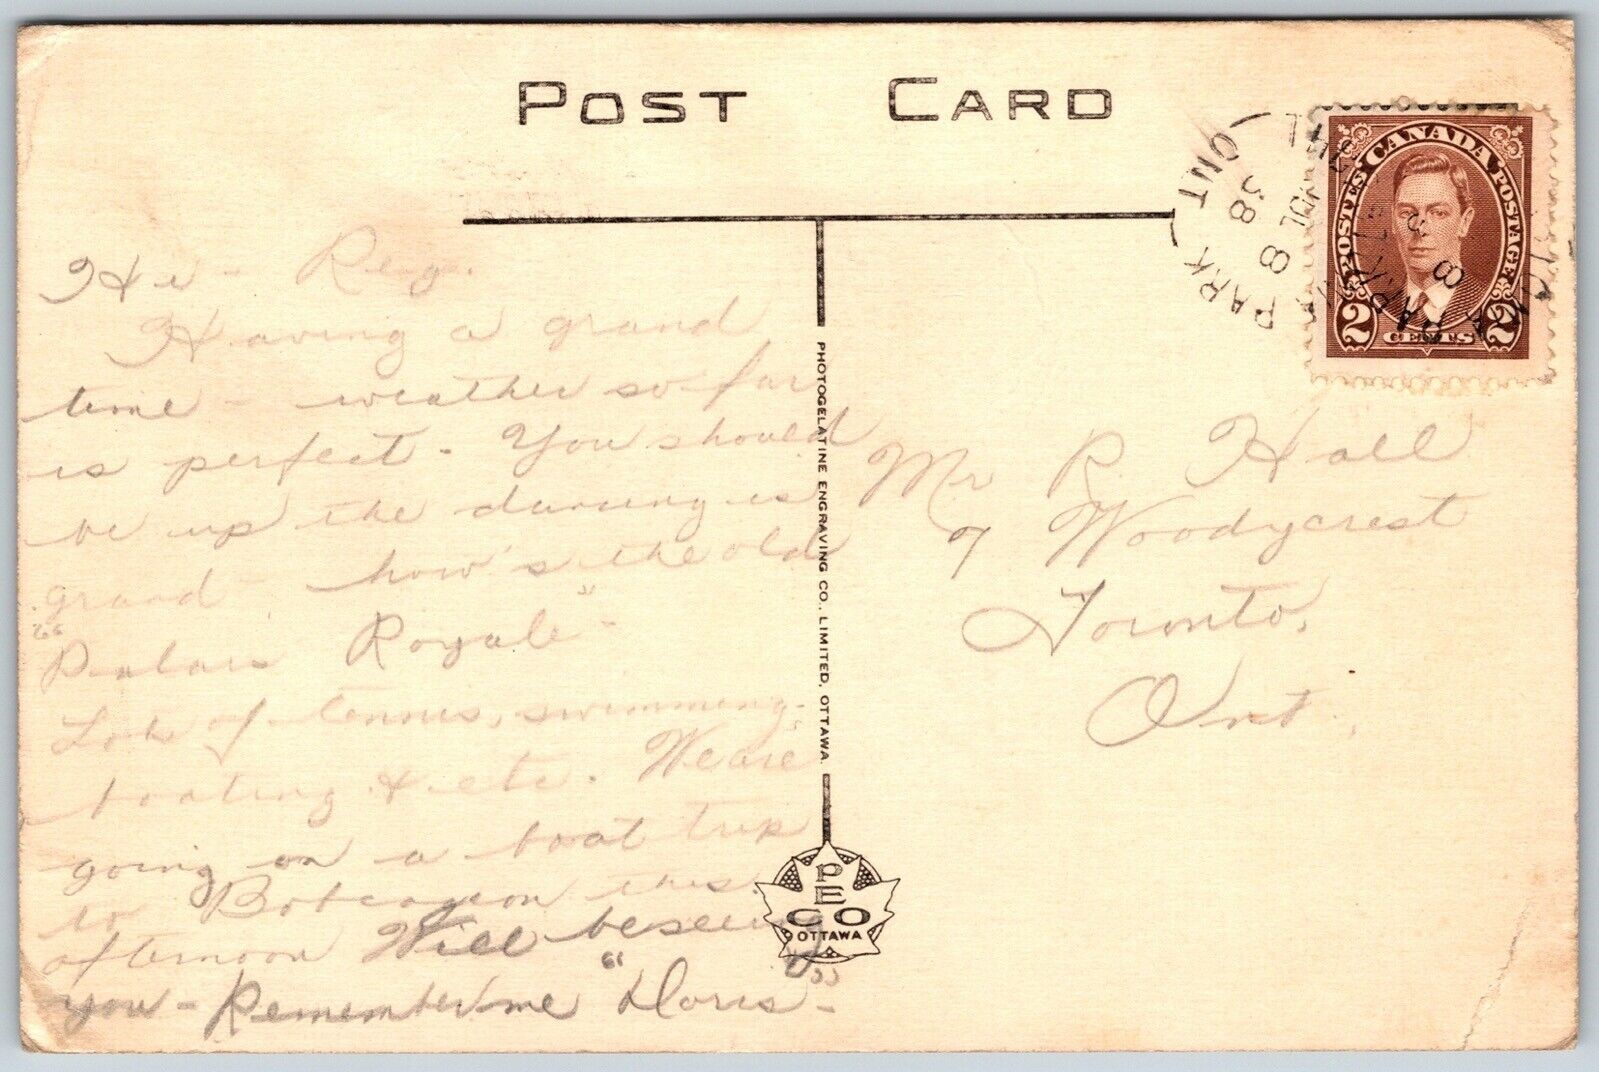 POST CARD
He - Reg.
Having a grand
time - weather so far
is perfect - You should
be up the dancing is
grand - how's the old
"Palais Royale" -
Lots of tennis, swimming,
boating & etc. We are
going on a boat trip
to Bobcaygeon this
afternoon Will be seeing
you - Remember me "Doris" -
PHOTOGELATINE ENGRAVING CO., LIMITED, OTTAWA.
PECO
OTTAWA
PARK ONT
JUL 8
38
CANADA
POSTES POSTAGE
2 CENTS 2
Mr R. Hall
7 Woodycrest
Toronto,
Ont.